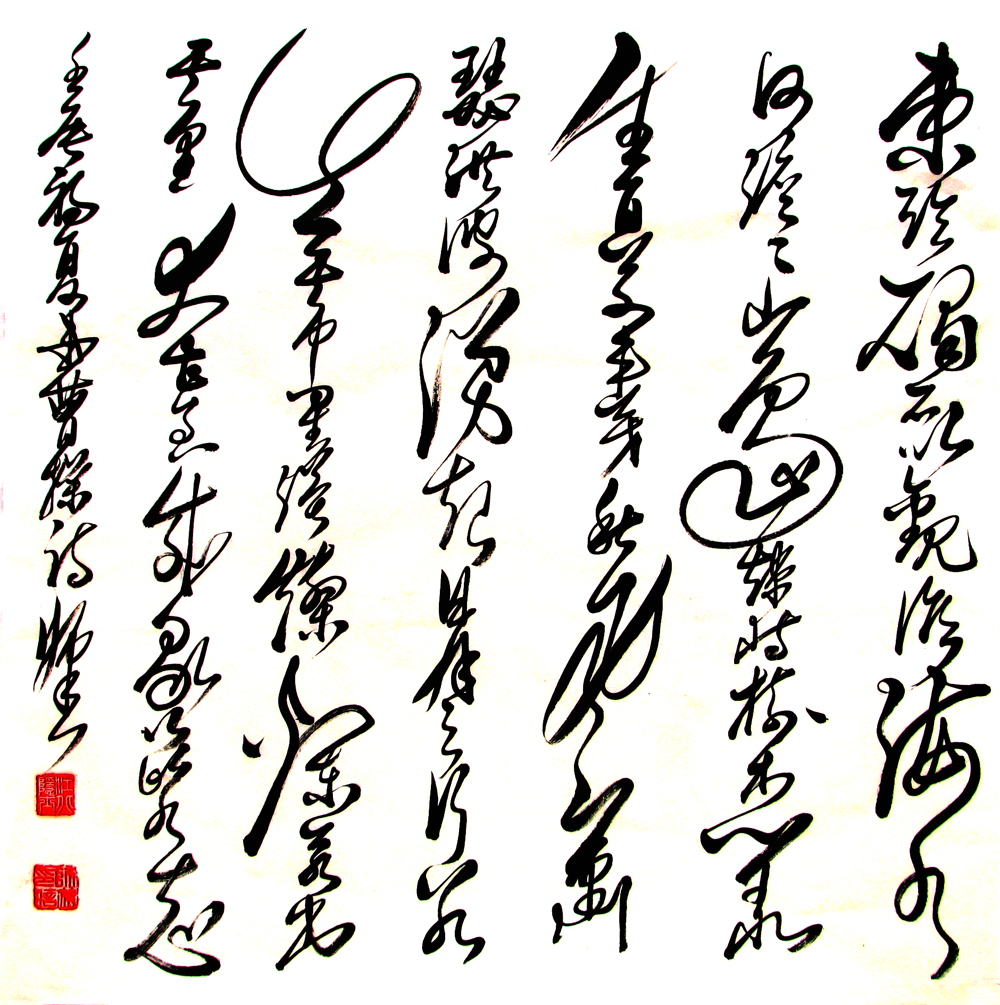 東臨碣石以觀滄海水
何澹々山島竦峙樹木叢
生百草豐茂秋風蕭
瑟洪波湧起日月之行若
出其中星漢燦爛若出
其里幸甚至哉歌以詠志
壬辰初夏書曹操詩